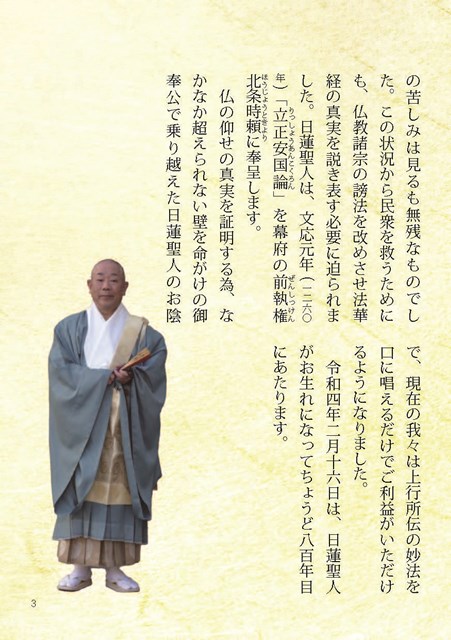 の苦しみは見るも無残なものでし
た。この状況から民衆を救うために
も、仏教諸宗の謗法を改めさせ法華
経の真実を説き表す必要に迫られま
した。日蓮聖人は、文応元年(一二六〇
年)「立正安国論」を幕府の前執権
りっしょうあんこくろん
ぜんしっけん
北条時頼に奉呈します。
ほうじょうときより
仏の仰せの真実を証明する為、な
かなか超えられない壁を命がけの御
奉公で乗り越えた日蓮聖人のお陰
で、現在の我々は上行所伝の妙法を
口に唱えるだけでご利益がいただけ
るようになりました。
令和四年二月十六日は、日蓮聖人
がお生れになってちょうど八百年目
にあたります。
3